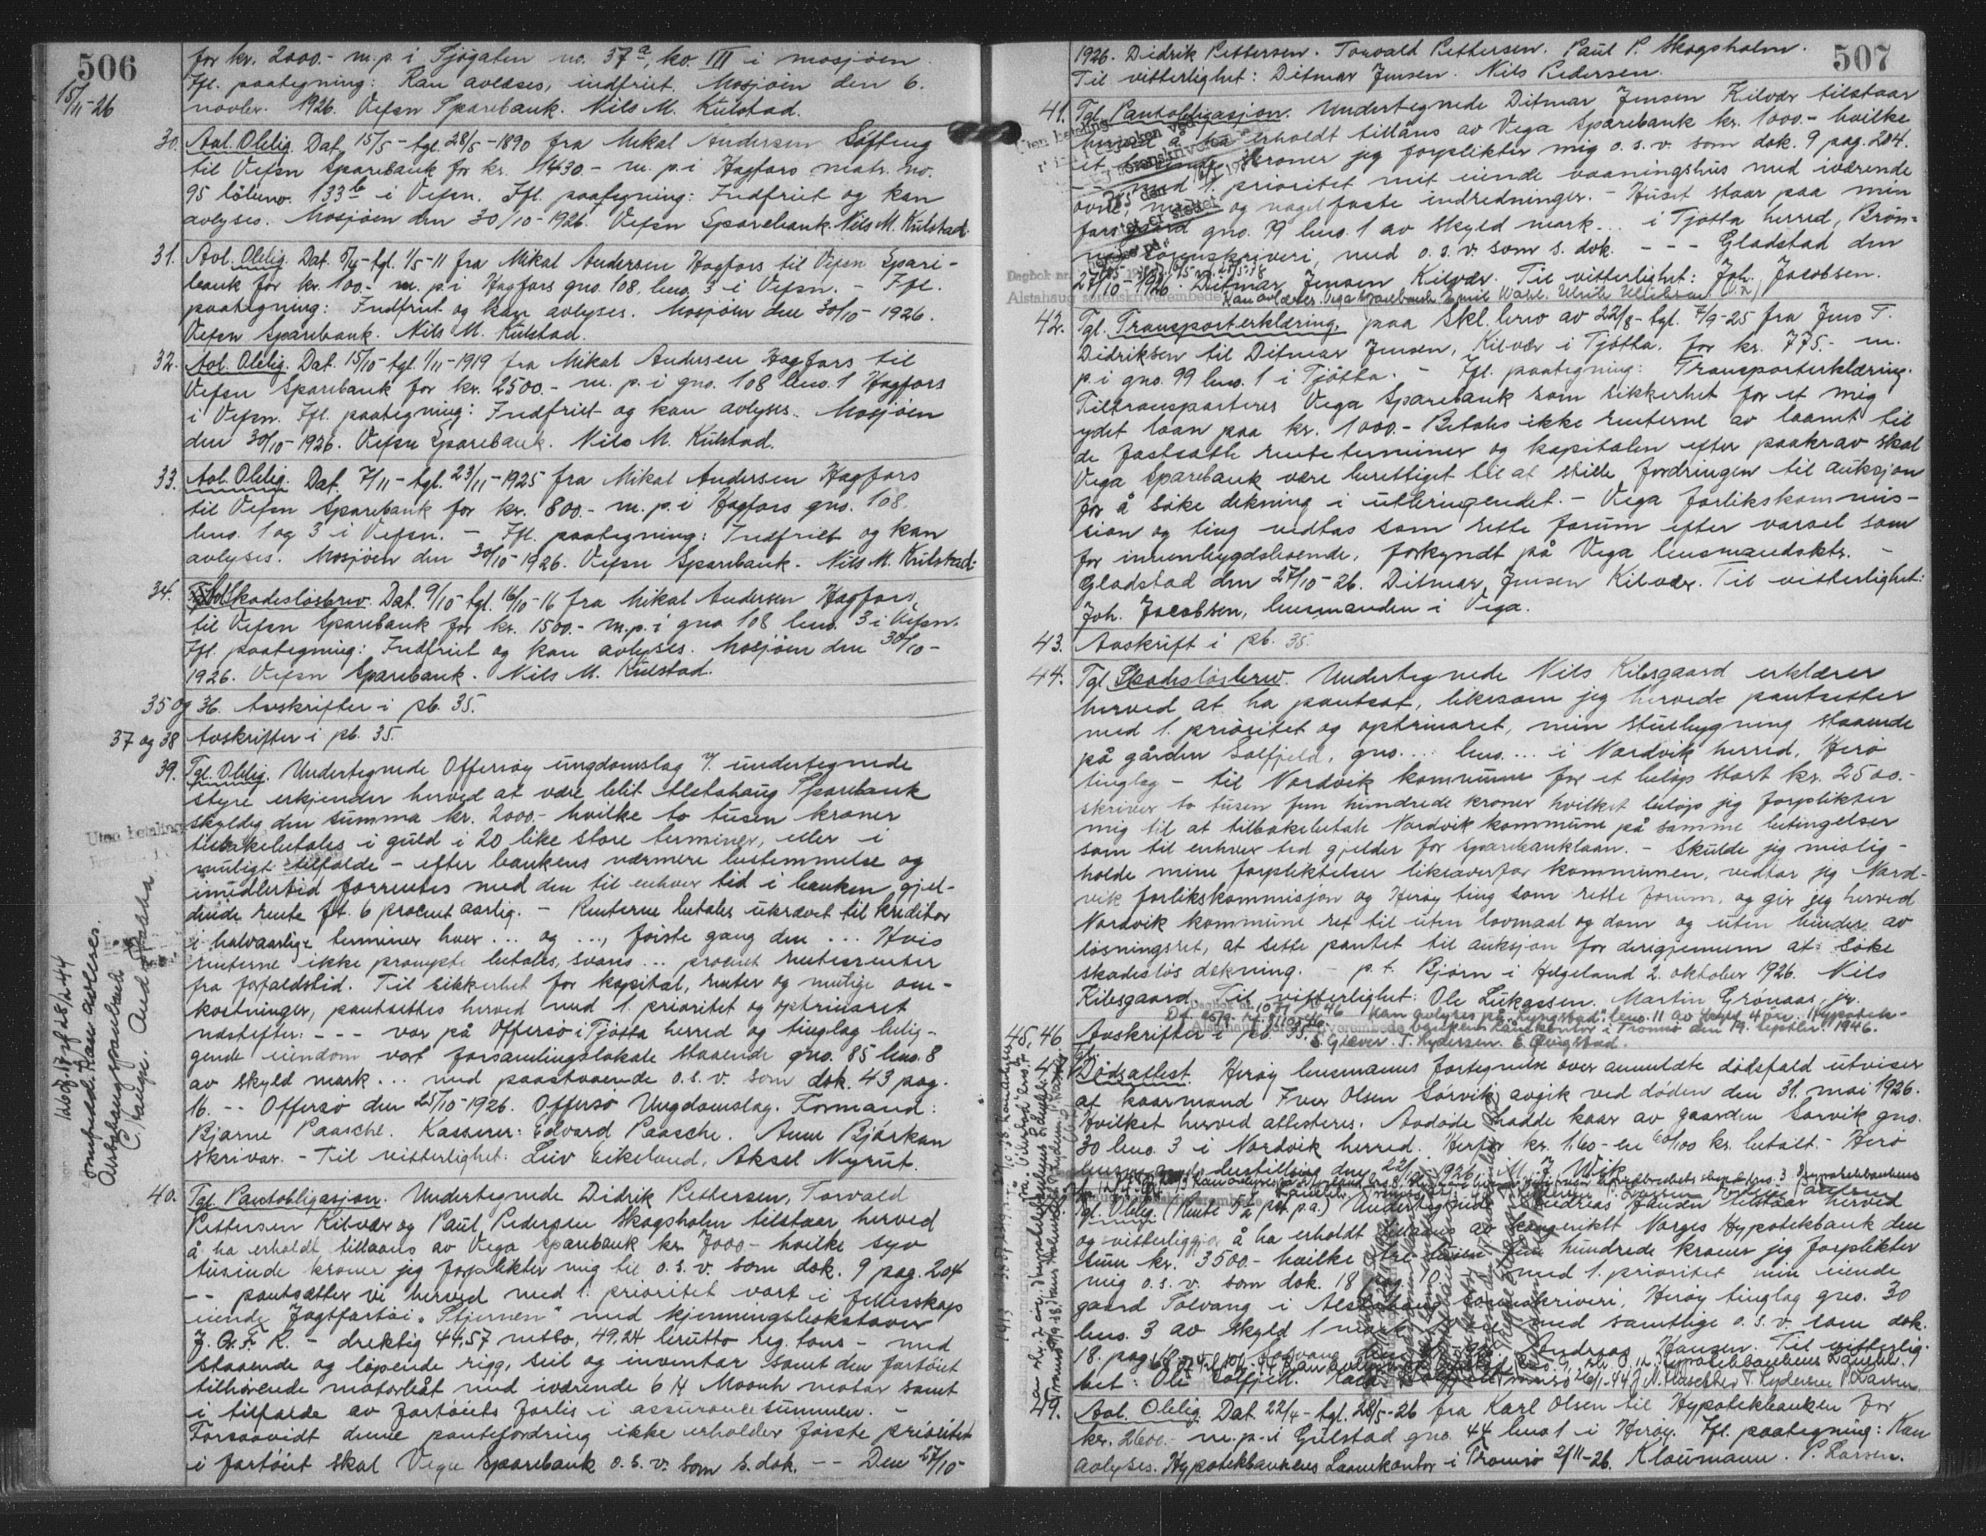 506
15/11-26
for kr. 2000.- m.p. i Sjøgaten no. 37a, ko. III i Mosjøen.
Ifl. paategning: Kan avlæses, indfriet. Mosjøen den 6.
novbr. 1926. Vefsn Sparebank. Nils M. Kulstad.
30. Avl. Oblig. Dat. 15/5 - tgl. 28/5-1890 fra Mikal Andersen
til Vefsn Sparebank for kr. 1430.- m.p. i Hagfors matr. no.
95 löbeno. 133b i Vefsn. Ifl. paategning: Indfriet og kan
avlyses. Mosjøen den 30/10-1926. Vefsn Sparebank. Nils M. Kulstad.
31. Avl. Oblig. Dat. tgl. 1/5-11 fra Mikal Andersen Hagfors til Vefsn Spare-
bank for kr. 100.- m.p. i Hagfors gno. 108, bno. 3 i Vefsn. - Ifl.
paategning: Indfriet og kan avlyses. Mosjøen den 30/10-1926.
Vefsn Sparebank. Nils M. Kulstad.
32. Avl. Oblig. Dat. 15/10- tgl. 1/11-1919 fra Mikal Andersen Hagfors til
Vefsn Sparebank for kr. 2500.- m.p. i gno. 108 bno. 1 Hagfors
i Vefsn. Ifl. paategning: Indfriet og kan avlyses. Mosjøen
den 30/10-1926. Vefsn Sparebank. Nils M. Kulstad.
33. Avl. Oblig. Dat. 7/11- tgl. 23/11-1925 fra Mikal Andersen Hagfors
til Vefsn Sparebank for kr. 800.- m.p. i Hagfors gno. 108,
bno. 1 og 3 i Vefsn. - Ifl. paategning: Indfriet og kan
avlyses. Mosjøen den 30/10-1926. Vefsn Sparebank. Nils M. Kulstad.
34. Skadesløsbrev. Dat. 9/10- tgl. 16/10-16 fra Mikal Andersen Hagfors
til Vefsn Sparebank for kr. 1500.- m.p. i gno. 108 bno. 3 i Vefsn.
Ifl. paategning: Indfriet og kan avlyses. Mosjøen den 30/10-
1926. Vefsn Sparebank. Nils M. Kulstad.
35 og 36. Avskrifter i pb. 35.
37 og 38 Avskrifter i pb. 35.
39. Tgl. Oblig. Undertegnede Offersøy ungdomslag v. undertegnede
styre erkjender herved at være blit Alstahaug Sparebank
skyldig den summa kr. 2000.- hvilke to tusen kroner
tilbakebetales i guld i 20 like store terminer, eller i
muligt tilfælde - efter bankens nærmere bestemmelse og
imidlertid forrentes med den til enhver tid i banken gjel-
dende rente f.t. 6 procent aarlig. - Renterne betales ukrævet til kreditor
i halvaarlige terminer hver ... og ..., første gang den ... Hvis
renterne ikke prompte betales, svares ... procent rentesrenter
fra forfaldstid. Til sikkerhet for kapital, renter og mulige om-
kostninger, pantsettes herved med 1. prioritet og optrinsret
næstefter: --- vor på Offersø i Tjøtta herred og tinglag belig-
gende eiendom vort forsamlingslokale staaende gno. 85 bno. 8
av skyld mark ... med paastaaende o.s.v. som dok. 43 pag.
16. -- Offersø den 25/10-1926. Offersø Ungdomslag. Formand:
Bjarne Paasche. Kasserer: Edvard Paasche. Arne Bjørkan
skrivar. - Til vitterlighet: Leiv Eikeland, Aksel Nyrut.
40. Tgl. Pantobligasjon. Undertegnede Didrik Pettersen, Torvald
Pettersen Kilvær og Paul Pedersen Skogsholm tilstaar herved
å ha erholdt tillaans av Vega Sparebank kr. 7000- hvilke syv
tusinde kroner jeg forplikter mig til o.s.v. som dok. 9 pag. 204
-- pantsætter vi herved med 1. prioritet vort i fellesskap
eiende Jagtfartøi "Stjernen" med kjenningsbokstaver
drektig 44,57 netto, 49.24 brutto reg. tons - med
staaende og løpende rigg, seil og inventar samt den fartøiet
tilhørende motorbåt med iværende 6 H motor samt
i tilfælde av fartøiets forlis i assurancesummen. -
Forsaavidt denne pantefordring ikke erholder første prioritet
i fartøiet skal Vega Sparebank o.s.v. som s. dok. -- Den 27/10-
507
1926. Didrik Pettersen. Torvald Pettersen. Paul P. Skogsholm.
Til vitterlighet: Ditmar Jensen. Nils Pedersen.
41. Tgl. Pantobligasjon. Undertegnede Ditmar Jensen Kilvær tilstaar
herved å ha erholdt tillåns av Vega Sparebank kr. 1000.- hvilke
et tusinde kroner jeg forplikter mig o.s.v. som dok. 9 pag. 204.
-- med 1. prioritet mit eiende vaaningshus med iværende
ovne, og nagelfaste indredninger. - Huset staar paa min
gno. 99 bno. 1 av skyld mark ... i Tjøtta herred, Brøn-
nø sorenskriveri, med o.s.v. som s. dok. --- Gladstad den
27/10-1926. Ditmar Jensen Kilvær. Til vitterlighet: Joh. Jacobsen.
42. Tgl. Transporterklæring paa skl. brev av 22/8- tgl. 7/9-25 fra Jens T.
Didriksen til Ditmar Jensen, Kilvær i Tjøtta, for kr. 775.- m.
p. i gno. 99 bno. 1 i Tjøtta. - Ifl. paategning: Transporterklæring.
Tiltransporteres Vega Sparebank som sikkerhet for et mig
ydet laan paa kr. 1000.- Betales ikke renterne av laanet til
de fastsatte renteterminer og kapitalen efter paakrav skal
Vega Sparebank være berettiget til at stille fordringen til auksjon
for å søke dekning i utbringendet. - Vega forlikskommis-
sion og ting vedtas som rette forum efter varsel som
for innenbygdsboende, forkyndt på Vega lensmandsktr. -
Gladstad den 27/10-26. Ditmar Jensen Kilvær. Til vitterlighet:
Joh. Jacobsen, lensmanden i Vega.
43. Avskrift i pb. 35.
44. Tgl. Skadesløsbrev. Undertegnede Nils Kibsgaard erklærer
herved at ha pantsat, likesom jeg herved pantsetter
med 1. prioritet og optrinsret, min stuebygning staaende
på gården Solfjeld, gno. ... bno. ... i Nordvik herred, Herø
tinglag - til Nordvik kommune for et beløp stort kr. 2500.-
skriver to tusen fem hundrede kroner hvilket beløp jeg forplikter
mig til at tilbakebetale Nordvik kommune på samme betingelser
som til enhver tid gjelder for sparebanklaan. - Skulde jeg mislig-
holde mine forpliktelser likeoverfor kommunen, vedtar jeg Nord-
vik forlikskommisjon og Herøy ting som rette forum, og gir jeg herved
Nordvik kommune ret til uten lovmaal og dom og uten hinder av
løsningsret, at sette pantet til auksjon for derigjennem at søke
skadesløs dekning. - p.t. Bjørn i Helgeland 2. oktober 1926. Nils
Kibsgaard. Til vitterlighet: Ole Lukassen. Martin Grønaas, jr.
45, 46 Avskrifter i pb. 35.
47. Dødsattest. Herøy lensmanns fortegnelse over anmeldte dødsfald utviser
at kaarmand Iver Olsen Sørvik avgik ved døden den 31. mai 1926.
Hvilket herved attesteres. Avdøde hadde kaar av gaarden Sørvik gno.
30 bno. 3 i Nordvik herred. Herfor kr. 1.60 - en 60/100 kr. betalt. - Herø
Tgl. Oblig. Undertegnede Andreas Hansen tilstaar herved
og vitterliggjør å ha erholdt tillaans av kongeriket Norges Hypotekbank den
sum kr. 3500.- hvilke tre tusen fem hundrede kroner jeg forplikter
mig o.s.v. som dok. 18 med 1. prioritet min eiende
gaard Solvang i Alstahaug sorenskriveri, Herøy tinglag gno. 30
bno. 3 av skyld 1 med samtlige o.s.v. som dok.
18. pag. Andreas Hansen. Til vitterlig-
het: Ole Solfjell.
49. Avl. Oblig. Dat. 22/4- tgl. 28/5-26 fra Karl Olsen til Hypotekbanken for
kr. 2600.- m.p. i Gulstad gno. 44 bno 1 i Herøy. Ifl. paategning: Kan
avlyses. Hypotekbankens Laanekontor i Tromsø 2/11-26. Klaumann. P. Larsen.